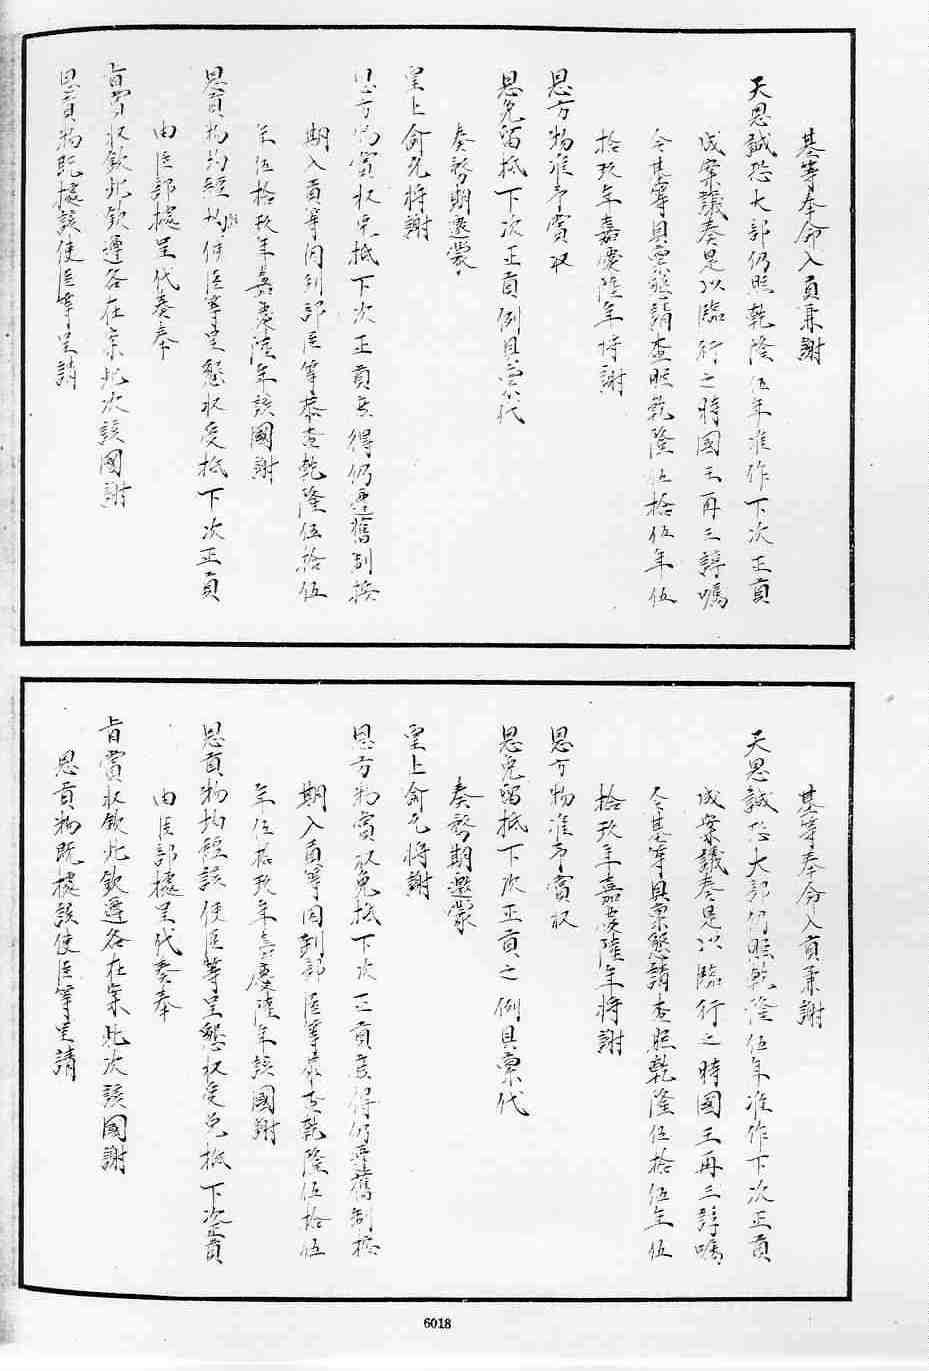 基等奉命入貢兼謝
天恩誠恐大部仍照乾隆伍年准作下次正貢
成案議奏是以臨行之時國王再三諄囑
令基等具稟懇請查照乾隆伍拾伍年伍
拾玖年嘉慶陸年將謝
恩方物准予賞收
恩免留抵下次正貢例具稟代
奏務期邀蒙
皇上俞允將謝
恩方物賞收免抵下次正貢庶得仍遵舊制按
期入貢等因到部臣等恭查乾隆伍拾伍
年伍拾玖年嘉慶陸年該國謝
恩貢物均經 使臣等呈懇收受抵下次正貢
由臣部據呈代奏奉
旨賞收欽此欽遵各在案此次該國謝
恩貢物既據該使臣等呈請
基等奉命入貢兼謝
天恩誠恐大部仍照乾隆伍年准作下次正貢
成案議奏是以臨行之時國王再三諄囑
令基等具稟懇請查照乾隆伍拾伍年伍
拾玖年嘉慶陸年將謝
恩方物准予賞收
恩免留抵下次正貢之例具稟代
奏務期邀蒙
皇上俞允將謝
恩方物賞收免抵下次正貢庶得仍遵舊制按
期入貢等因到部臣等恭查乾隆伍拾伍
年伍拾玖年嘉慶陸年該國謝
恩貢物均經該使臣等呈懇收受免抵下次正貢
由臣部據呈代奏奉
旨賞收欽此欽遵各在案此次該國謝
恩貢物既據該使臣等呈請
6018